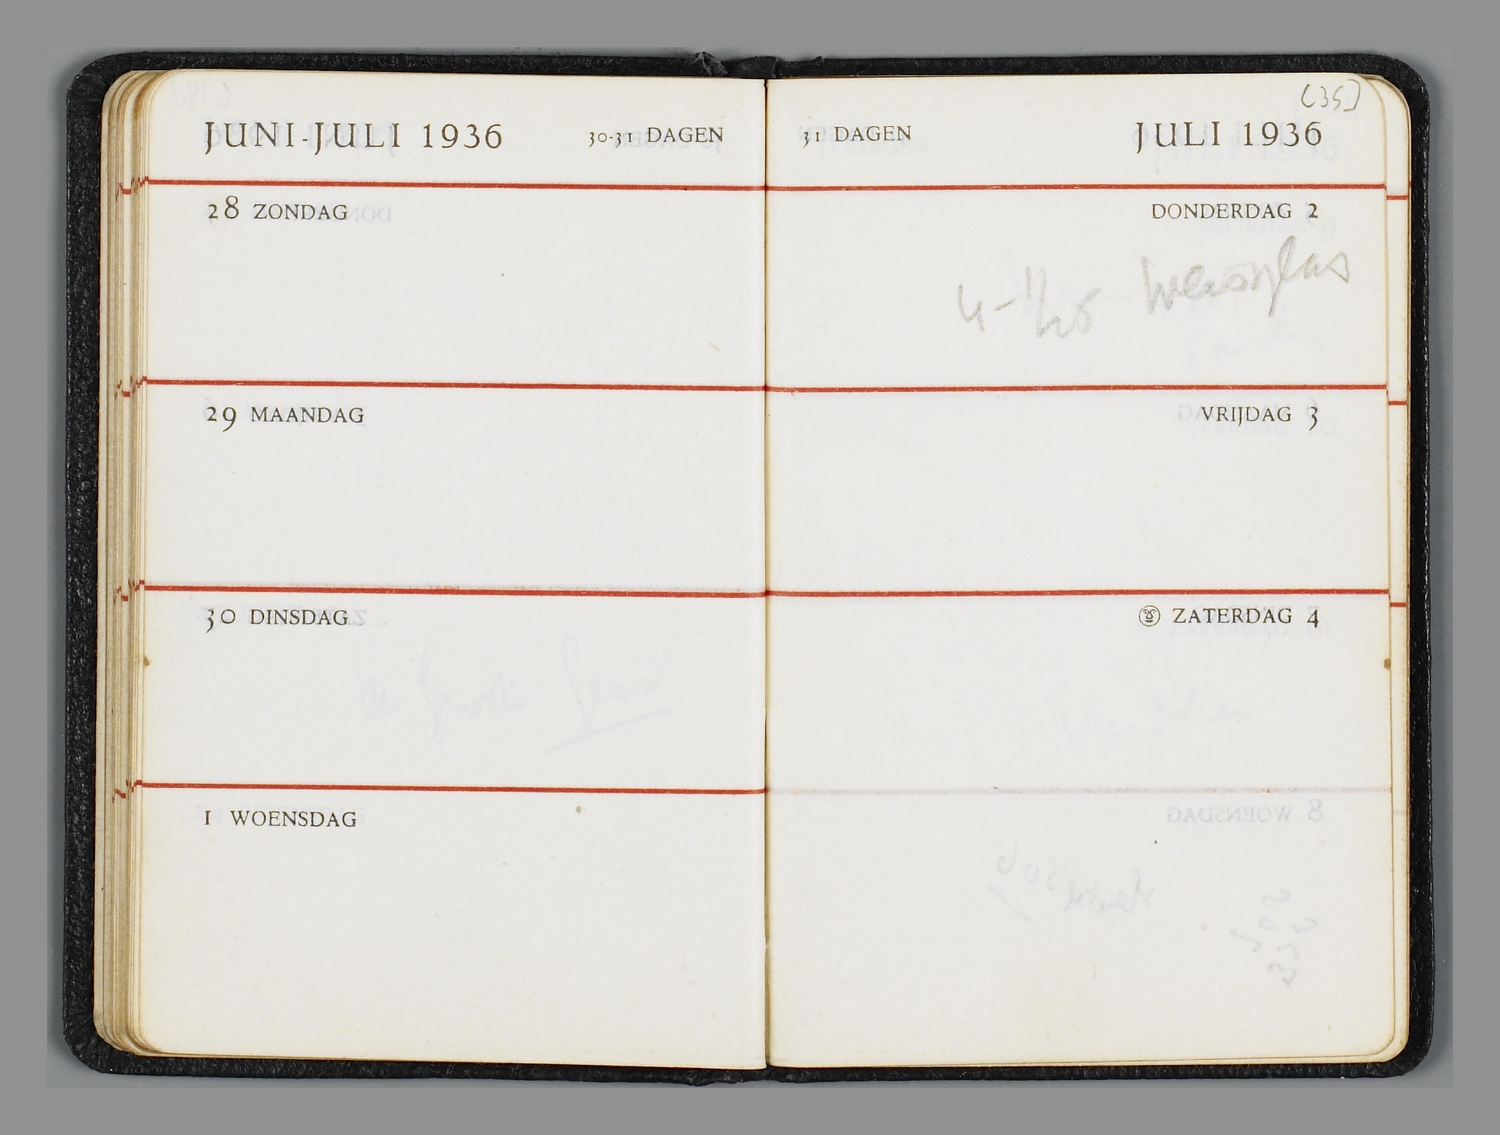 JUNI-JULI 1936 30-31 DAGEN
28 ZONDAG
29 MAANDAG
30 DINSDAG
1 WOENSDAG
(35)
31 DAGEN JULI 1936
DONDERDAG 2
VRIJDAG 3
ZATERDAG 4